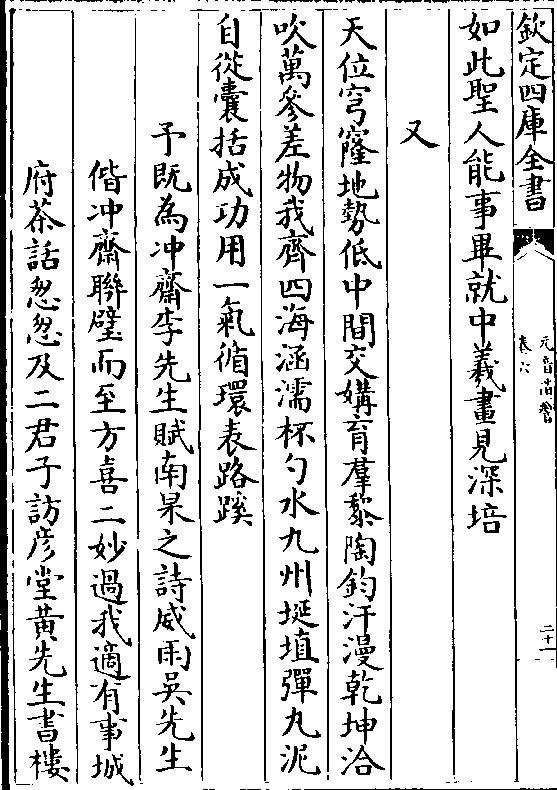 欽定四庫全書
卷六
二十一
如此聖人能事畢就中羲畫見深培
又
天位穹窿地勢低中間交媾育羣黎陶鈞汗漫乾坤洽
吹萬參差物我齊四海涵濡杯勺水九州埏埴彈丸泥
自從囊括成功用一氣循環表路蹊
予既為冲齋李先生賦南杲之詩威雨吳先生
偕冲齋聯璧而至方喜二妙過我適有事城
府茶話怱怱及二君子訪彦堂黄先生書樓